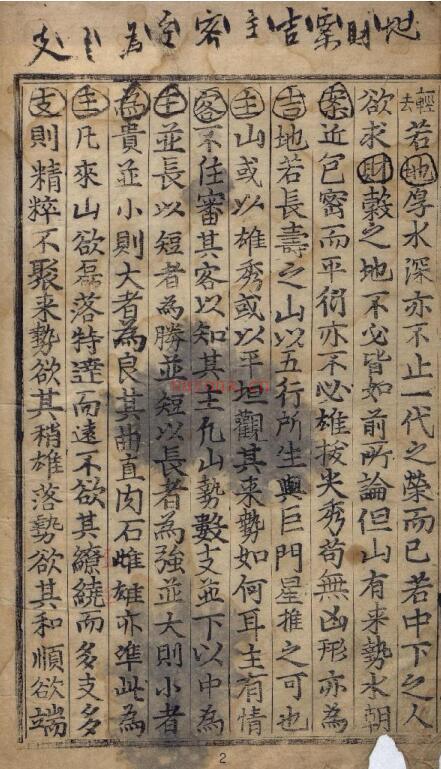 地財案吉主客至為支
輕去若地厚水深亦不止一代之榮而已若中下之人
欲求財穀之地不必皆如前所論但山有来勢水朝
案近包密而平衍亦不必雄拔尖秀苟無凶形亦為
吉地若長壽之山以五行所生與巨門星推之可也
主山或以雄秀或以平坦觀其来勢如何耳主有情
客不住審其客以知其主凡山勢數支並下以中為
主並長以短者為勝並短以長者為強並大則小者
為貴並小則大者為良其曲直肉石雌雄亦準此為
主凡來山欲磊落特達而遠不欲其繚繞而多支多
支則精粹不聚来勢欲其稍雄落勢欲其和順欲端
2